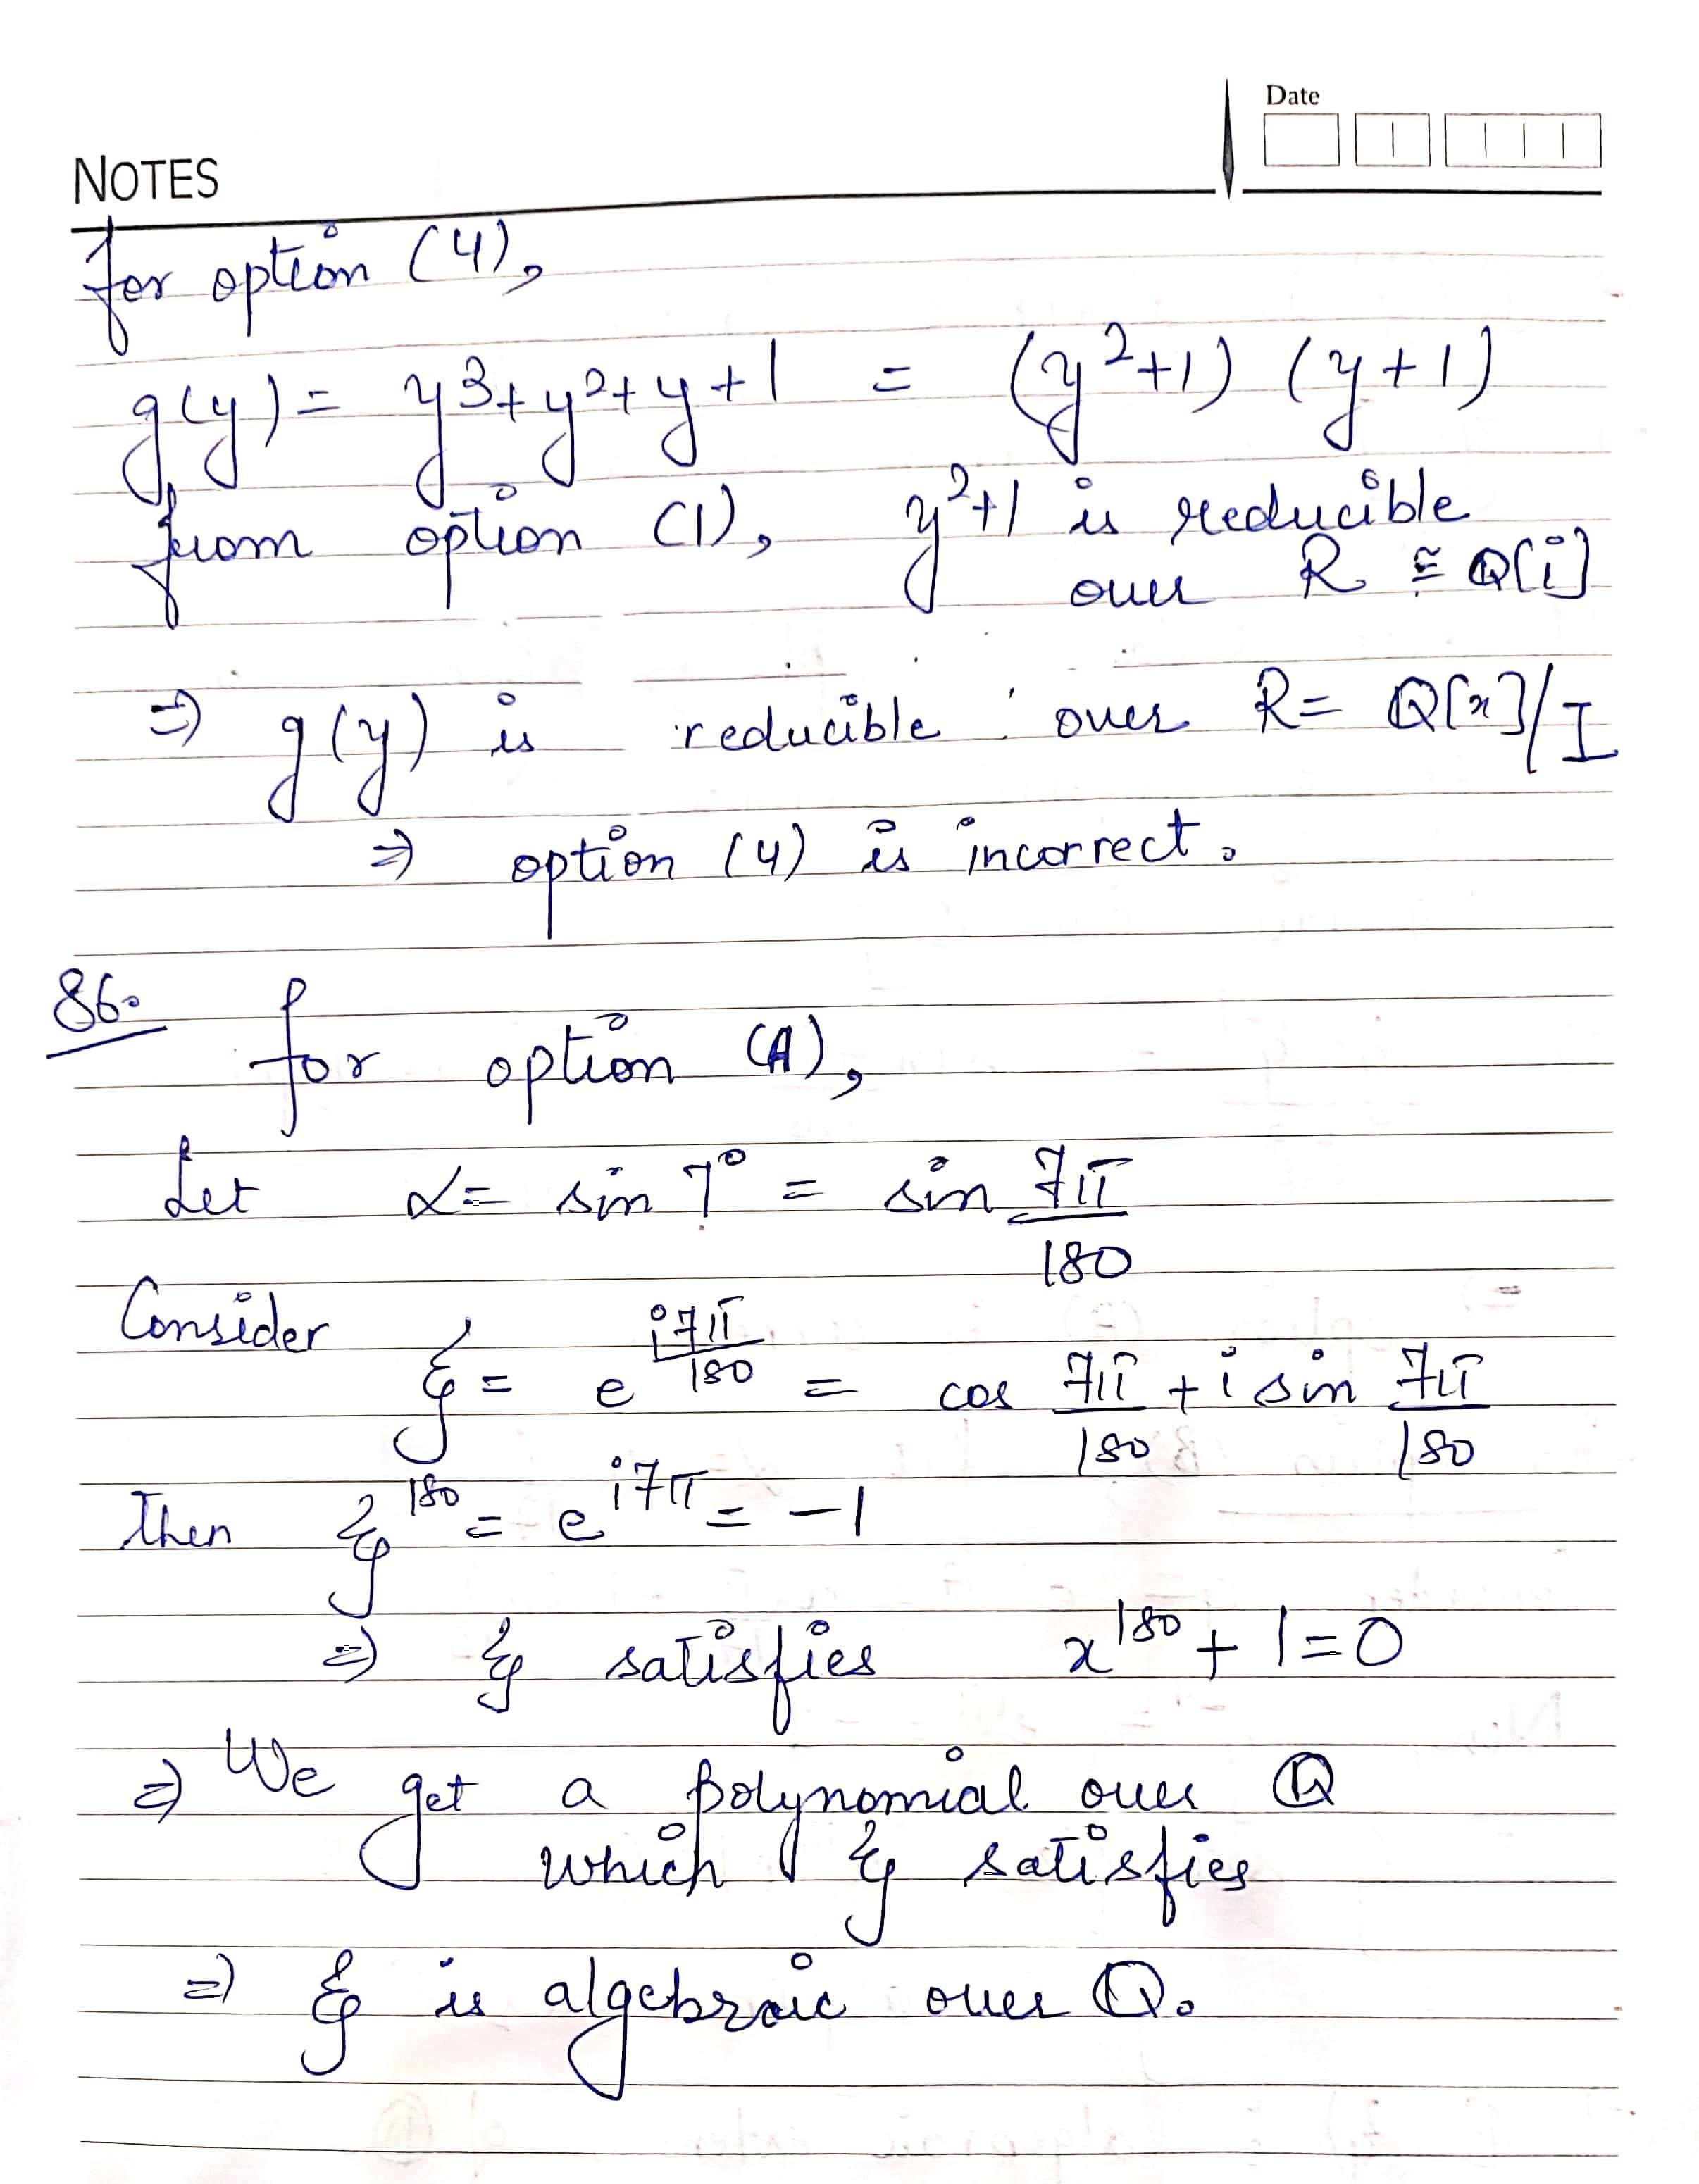 Date
NOTES
for option (4),
g(y) = y³ + y² + y + 1 = (y²+1) (y+1)
from option (1), y²+1 is reducible
over R ≅ Q[i]
⇒ g(y) is reducible over R = Q[x]/I
⇒ option (4) is incorrect.
86. for option (A),
Let α = sin 7° = sin 7π/180
Consider ξ = e^(i7π/180) = cos 7π/180 + i sin 7π/180
Then ξ^180 = e^(i7π) = -1
⇒ ξ satisfies x^180 + 1 = 0
⇒ We get a polynomial over Q
which ξ satisfies
⇒ ξ is algebraic over Q.